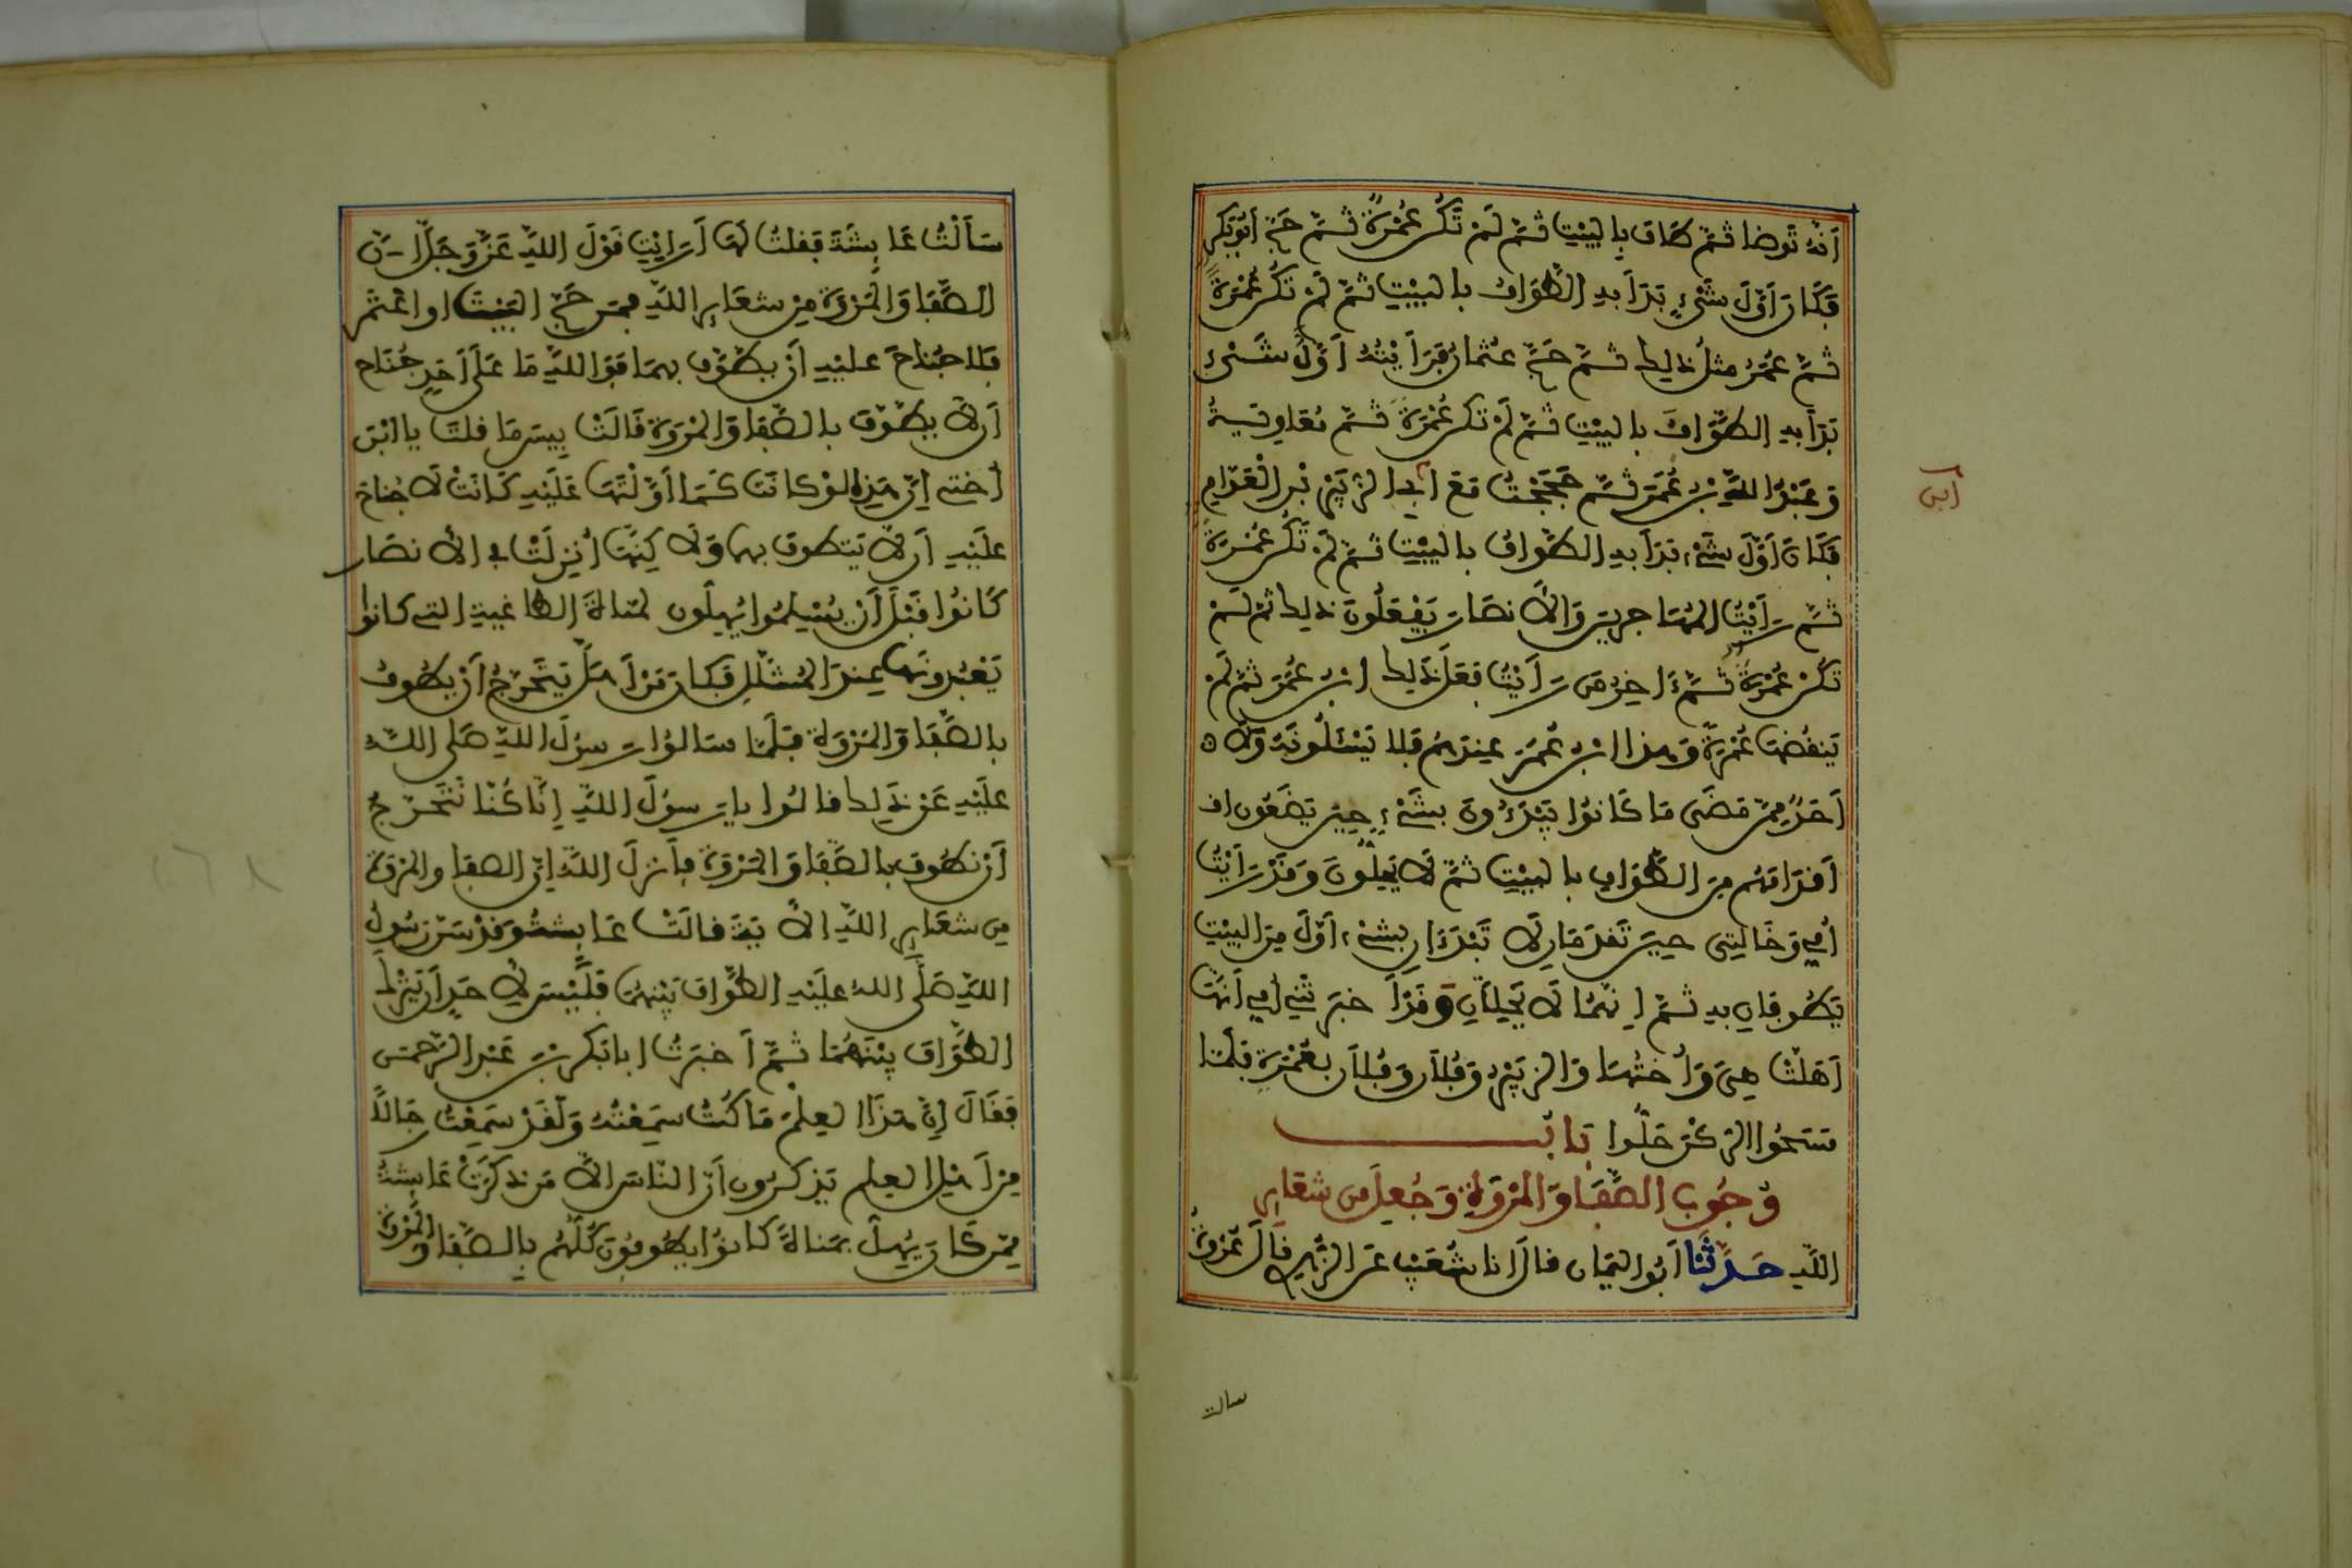 أنّه توضا ثمّ طاف بالبيْتِ ثمّ لمْ تكُن عُمْرةً ثمّ حجّ أبُو بكرٍ
فكان أوّلَ شَيْءٍ بَدَأ بهِ الطّوَافُ بالبيْتِ ثمّ لمْ تكُن عُمْرةً
ثمّ عُمَرُ مثلُ ذلك ثمّ حجّ عثمانُ فرَأيْتُهُ أوّلُ شَيْءٍ
بَدَأ بهِ الطّوافُ بالبيْتِ ثمّ لمْ تكن عُمْرةً ثمّ مُعَاوِيَةُ
وعَبْدُ اللهِ بن عُمَرَ ثمّ حَجَجْتُ مَعَ ابي الزُّبَيْرِ بْنِ الْعَوّامِ
فكانَ أوّلَ شَيْءٍ بَدَأ بهِ الطّوافُ بالبيْتِ ثمّ لمْ تكُن عُمْرةً
ثمّ رَأيْتُ المُهاجرينَ وَالأنصَارَ يَفْعَلُونَ ذلك ثمّ لَمْ
تكُنْ عُمْرةً ثمّ ءَاخِرُ مَن رَأيْتُ فعَلَ ذَلِكَ ابن عُمَرَ ثمّ لَمْ
يَنقُضها عُمْرةً وَهذا ابن عُمَرَ عِندهُم فلا يَسْئَلُونَهُ وَلَا
أحَدٌ مِمّن مَضَى مَا كَانوُا يَبْدَءُونَ بشَيْءٍ حِينَ يَضَعُون اف
أقدَامَهُم مِنَ الطّوَافِ بالبيْتِ ثمّ لَا يَحِلّونَ وَقدْ رَأيْتُ
أُمّي وَخَالَتِي حِينَ تَقدَمَانِ لَا تَبْدَءَانِ بشيْءٍ أوّلَ مِنَ البيْتِ
تَطُوفانِ بهِ ثمّ إنّهُمَا لَا تَحِلّانِ وَقدْ أخبَرَتْنِي أُمّي أنّها
أهَلّتْ هِيَ وَأُختُهَا وَالزُّبَيْرُ وَفُلَانٌ وَفُلَانٌ بعُمْرَةٍ فلمّا
مَسَحُوا الرّكْنَ حَلّوا بَابُ
وُجُوبِ الصّفَا وَالمَرْوَةِ وَجُعِلَ مِن شَعَايِرِ
اللهِ حَدّثَنَا أبُو اليَمان قال انا شُعَيْب عَن الزّهْرِي قال عُرْوَةُ
ابي
سالت
سَألتُ عَايِشَةَ فقلتُ لها أرَايْتِ قَوْلَ اللهِ عَزّ وَجَلّ إنّ
الصّفا وَالمَرْوَةَ مِنْ شعَايِرِ اللهِ فمَن حَجّ البَيْتَ او اعْتَمَر
فلا جُنَاحَ عليْهِ أن يطّوّف بهمَا فوَاللهِ مَا عَلَى أحَدٍ جُنَاح
أن لا يطّوّف بالصّفا وَالمَرْوَةِ قَالَتْ بِيسَ مَا قلتَ يا ابْنَ
أختِي إنّ هَذِهِ لوْ كانَتْ كَمَا أوّلْتَهَا عَلَيْهِ كَانَتْ لا جُناحَ
عليْهِ أن لّا يَتَطوف بهما وَلَاكِنّهَا أُنزِلَتْ في الأنصَار
كَانوُا قَبْلَ أن يُسْلِمُوا يُهِلّون لمَناةَ الطاغيةِ التِي كانوا
يَعْبُدُونَها عِندَ المُشَلّلِ فكان مَن أهَلّ يَتَحَرّجُ أنْ يطُوفَ
بالصّفَا وَالمَرْوَةِ فلَمّا سَالُوا رَسولَ اللهِ صَلى اللهُ
عليْهِ عَنْ ذَلِك قالوا يا رَسولَ اللهِ إنّا كُنّا نَتَحَرّجُ
أنْ نطُوفَ بالصّفَا وَالمَرْوَةِ فأنزلَ اللهُ إنّ الصفا والمرْوَةَ
مِن شعَايِرِ اللهِ الآيَةَ قالَتْ عَايِشَةُ وَقَدْ سَنّ رَسُولُ
اللهِ صَلّى الله عليْهِ الطّوَافَ بَيْنَهُمَا فلَيْسَ لِأحَدٍ أن يَتْرُكَ
الطّوَافَ بيْنَهُمَا ثمّ أخبَرتُ ابا بَكرِ بْنَ عَبْدِ الرّحمنِ
فقَالَ إنّ هَذَا لعِلمٌ مَا كُنتُ سَمِعْتُهُ وَلقَدْ سَمِعْتُ رِجَالًا
مِن أهْلِ العِلمِ يَذكرُون أنّ النّاسَ إلّا مَن ذكَرَتْ عَايِشَةُ
مِمّن كَانَ يُهِلّ بمَناةَ كانوُا يطُوفُونَ كُلّهُم بالصّفا وَالمَرْوَةِ